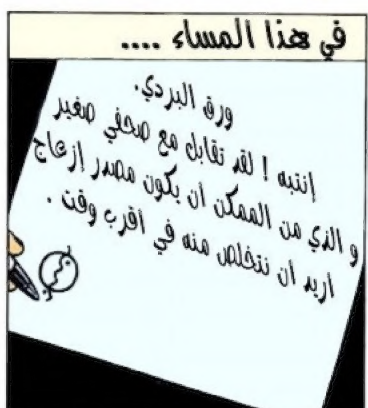 في هذا المساء ....
ورق البردي.
إنتبه ! لقد تقابل مع صحفي صغير
و الذي من الممكن ان يكون مصدر إزعاج
اريد ان نتخلص منه في أقرب وقت .